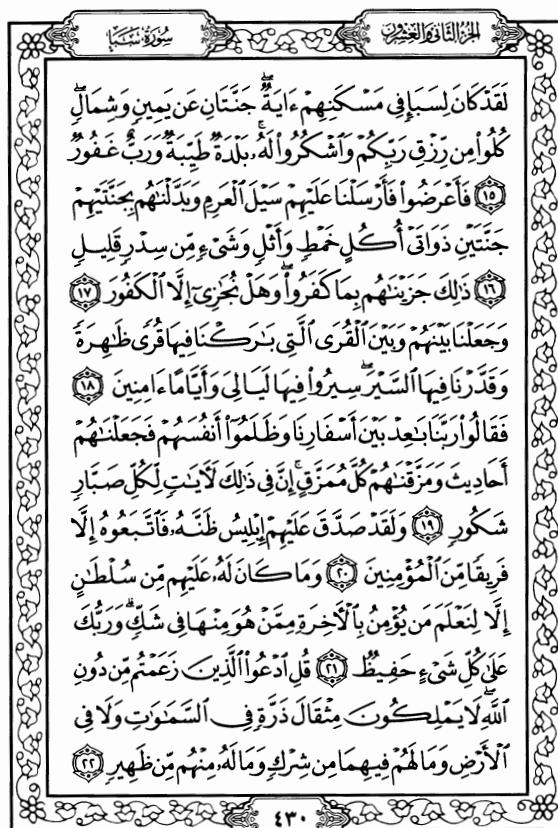 الجزء الثاني والعشرون
سورة سبإ
لَقَدْ كَانَ لِسَبَإٍ فِى مَسْكَنِهِمْ ءَايَةٌ ۖ جَنَّتَانِ عَن يَمِينٍ وَشِمَالٍ ۖ
كُلُوا۟ مِن رِّزْقِ رَبِّكُمْ وَٱشْكُرُوا۟ لَهُۥ ۚ بَلْدَةٌ طَيِّبَةٌ وَرَبٌّ غَفُورٌ
﴿١٥﴾ فَأَعْرَضُوا۟ فَأَرْسَلْنَا عَلَيْهِمْ سَيْلَ ٱلْعَرِمِ وَبَدَّلْنَـٰهُم بِجَنَّتَيْهِمْ
جَنَّتَيْنِ ذَوَاتَىْ أُكُلٍ خَمْطٍ وَأَثْلٍ وَشَىْءٍ مِّن سِدْرٍ قَلِيلٍ
﴿١٦﴾ ذَٰلِكَ جَزَيْنَـٰهُم بِمَا كَفَرُوا۟ ۖ وَهَلْ نُجَـٰزِىٓ إِلَّا ٱلْكَفُورَ ﴿١٧﴾
وَجَعَلْنَا بَيْنَهُمْ وَبَيْنَ ٱلْقُرَى ٱلَّتِى بَـٰرَكْنَا فِيهَا قُرًى ظَـٰهِرَةً
وَقَدَّرْنَا فِيهَا ٱلسَّيْرَ ۖ سِيرُوا۟ فِيهَا لَيَالِىَ وَأَيَّامًا ءَامِنِينَ ﴿١٨﴾
فَقَالُوا۟ رَبَّنَا بَـٰعِدْ بَيْنَ أَسْفَارِنَا وَظَلَمُوٓا۟ أَنفُسَهُمْ فَجَعَلْنَـٰهُمْ
أَحَادِيثَ وَمَزَّقْنَـٰهُمْ كُلَّ مُمَزَّقٍ ۚ إِنَّ فِى ذَٰلِكَ لَـَٔايَـٰتٍ لِّكُلِّ صَبَّارٍ
شَكُورٍ ﴿١٩﴾ وَلَقَدْ صَدَّقَ عَلَيْهِمْ إِبْلِيسُ ظَنَّهُۥ فَٱتَّبَعُوهُ إِلَّا
فَرِيقًا مِّنَ ٱلْمُؤْمِنِينَ ﴿٢٠﴾ وَمَا كَانَ لَهُۥ عَلَيْهِم مِّن سُلْطَـٰنٍ
إِلَّا لِنَعْلَمَ مَن يُؤْمِنُ بِٱلْـَٔاخِرَةِ مِمَّنْ هُوَ مِنْهَا فِى شَكٍّ ۗ وَرَبُّكَ
عَلَىٰ كُلِّ شَىْءٍ حَفِيظٌ ﴿٢١﴾ قُلِ ٱدْعُوا۟ ٱلَّذِينَ زَعَمْتُم مِّن دُونِ
ٱللَّهِ ۖ لَا يَمْلِكُونَ مِثْقَالَ ذَرَّةٍ فِى ٱلسَّمَـٰوَٰتِ وَلَا فِى
ٱلْأَرْضِ وَمَا لَهُمْ فِيهِمَا مِن شِرْكٍ وَمَا لَهُۥ مِنْهُم مِّن ظَهِيرٍ ﴿٢٢﴾
٤٣٠